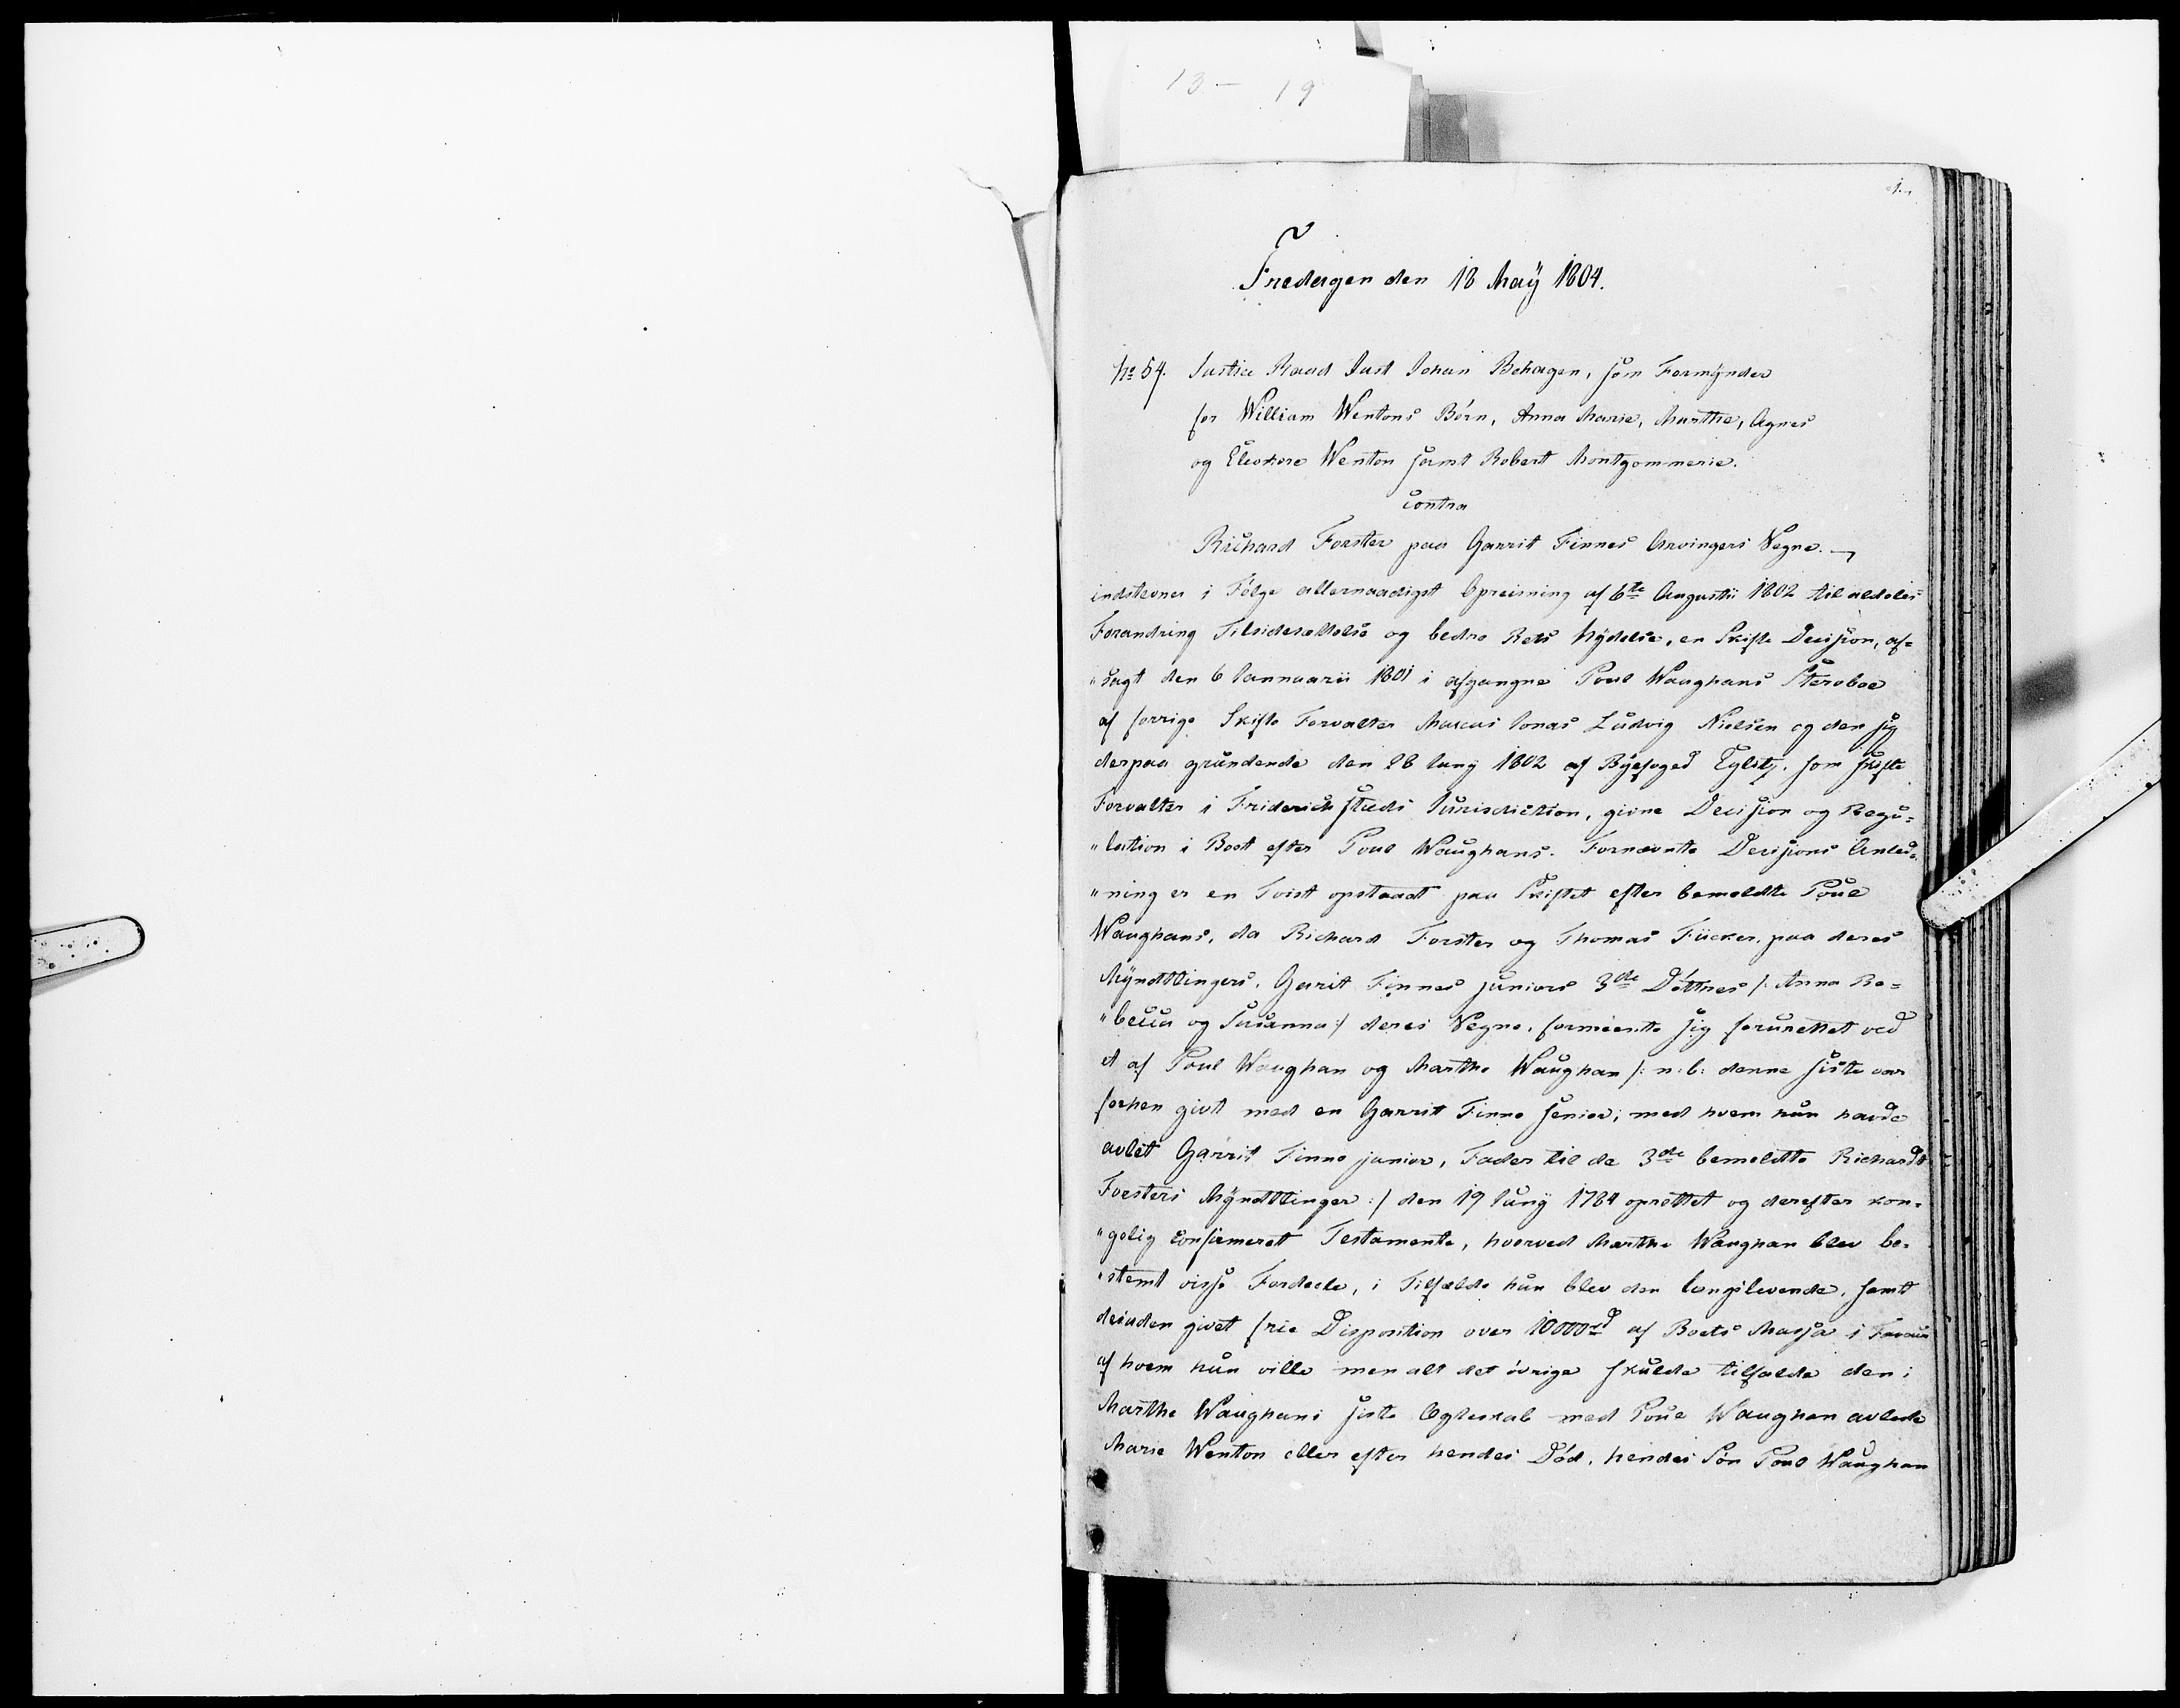 13 - 19
1.
Fredagen den 18 Maÿ 1804.
No 54. Justice Raad Just Johan Behagen, som Formÿnder
for William Wentons Börn, Anna Marie, Marthe, Agnes
og Eleonore Wenton samt Robert Montgommerie.
contra
Richard Forster paa Garrit Finnes Arvingers Vegne.
indstevner i Fölge allernaadigst Opreisning af 6te Augustii 1802 til aldeles
Forandring Tilsidesættelse og bedre Rets Nÿdelse, en Skifte Decision, af=
"sagt den 6 Januarii 1801 i afgangne Poul Waughans Sterboe
af forrige Skifte Forvalter Marcus Jonas Ludvig Nielsen og den sig
derpaa grundende den 28 Junÿ 1802 af Bÿefoged Eylitz, som Skifte
Forvalter i Friderichsteds Jurisdiction, givne Decision og Regu=
"lation i Boet efter Poul Waughans. Fornævnte Decisions Anled=
"ning er en Tvist opstaadt paa Skiftet efter bemeldte Poul
Waughans, da Richard Forster og Thomas Tücker, paa deres
Mÿndtlingers, Garit Finnes juniors 3de Döttres /: Anna Re=
"becca og Susanna :/ deres Vegne, formeente sig forurettet ved
et af Poul Waughan og Marthe Waughan /: n: b: denne siste var
forhen givt med en Garrit Finne senior, med hvem hun havde
avlet Garrit Finne junior, Fader til de 3de bemeldte Richard
Forsters Mÿndtlinger :/ den 19 Junÿ 1784 oprettet og derefter kon=
"gelig confirmeret Testamente, hvorved Marthe Waughan blev be=
"stemt visse Fordeele, i Tilfælde hun blev den længstlevende, samt
desuden givet frie Disposition over 10000rd af Boets Massa i Faveur
af hvem hun ville men alt det övrige skulde tilfalde den i
Marthe Waughans siste Ægteskab med Poul Waughan avlede
Marie Wenton eller efter hendes Död, hendes Sön Poul Waughan